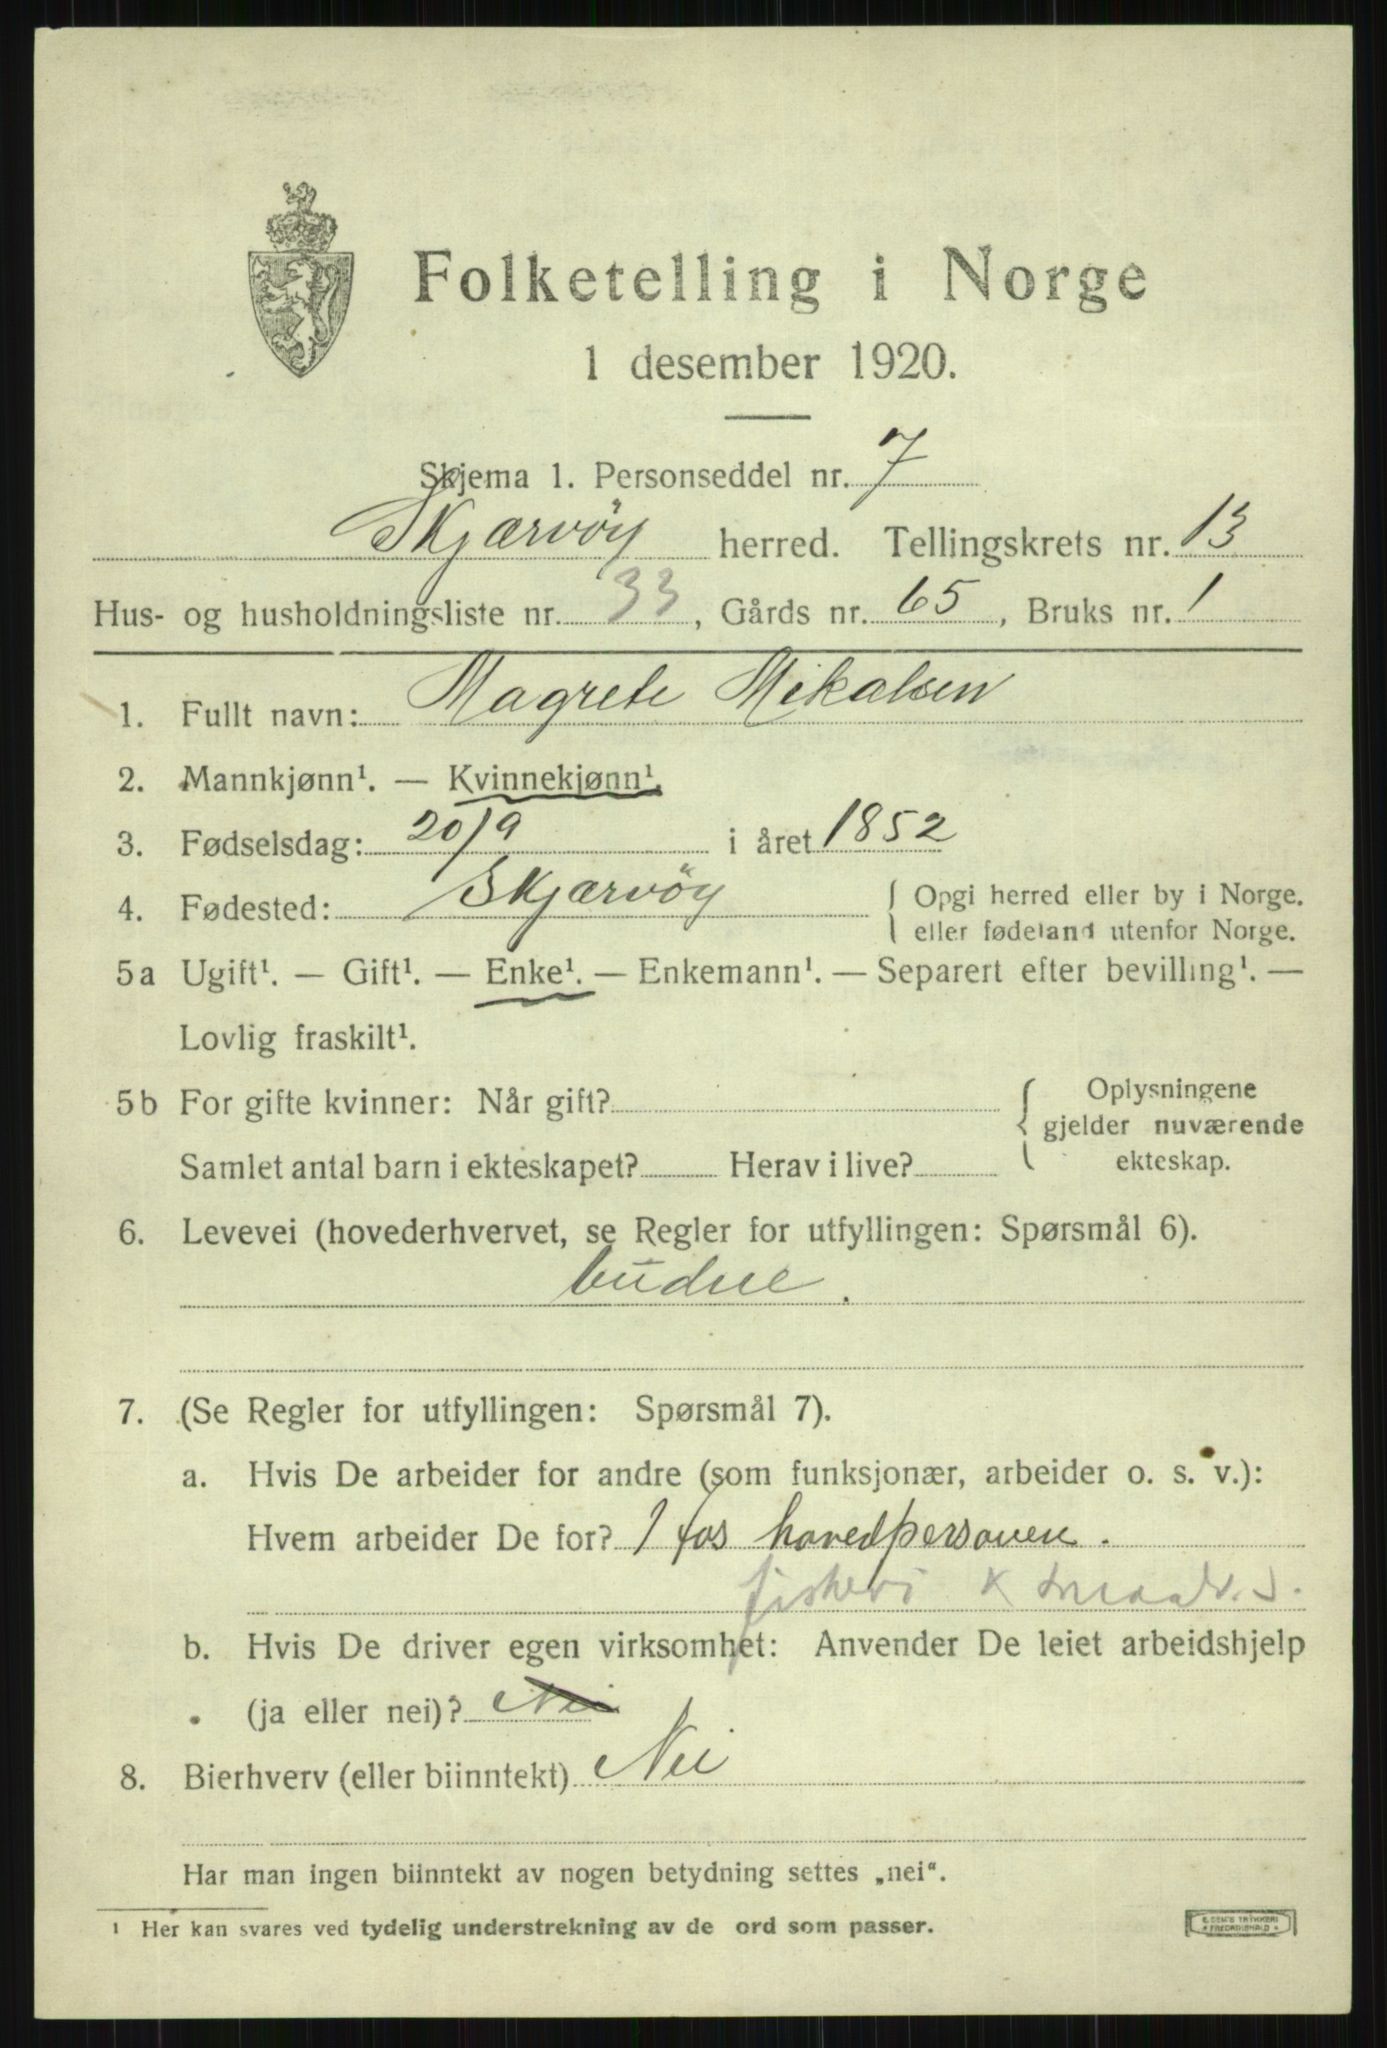 Folketelling i Norge
1 desember 1920.
Skjema 1. Personseddel nr. 7
Skjærvöy herred. Tellingskrets nr. 13
Hus- og husholdningsliste nr. 33, Gårds nr. 65, Bruks nr. 1
1. Fullt navn: Magrete Mikalsen
2. Mannkjønn¹. — Kvinnekjønn¹.
3. Fødselsdag: 20/9 i året 1852
4. Fødested: Skjærvöy { Opgi herred eller by i Norge.
eller fødeland utenfor Norge.
5a Ugift¹. — Gift¹. — Enke¹. — Enkemann¹. — Separert efter bevilling¹. —
Lovlig fraskilt¹.
5b For gifte kvinner: Når gift? { Oplysningene
gjelder nuværende
Samlet antal barn i ekteskapet? Herav i live? ekteskap.
6. Levevei (hovederhvervet, se Regler for utfyllingen: Spørsmål 6).
budeie.
7. (Se Regler for utfyllingen: Spørsmål 7).
a. Hvis De arbeider for andre (som funksjonær, arbeider o. s. v.):
Hvem arbeider De for? hovedpersonen.
fiskeri x
b. Hvis De driver egen virksomhet: Anvender De leiet arbeidshjelp
(ja eller nei)? Nei
8. Bierhverv (eller biinntekt) Nei
Har man ingen biinntekt av nogen betydning settes „nei“.
¹ Her kan svares ved tydelig understrekning av de ord som passer.